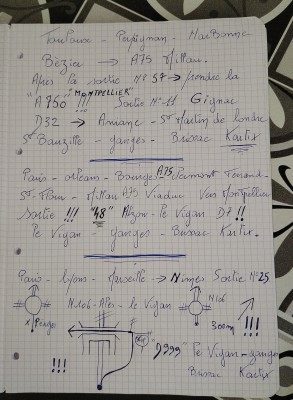 Toulouse - Perpignan - Narbonne
Bézier → A75 Millau.
Après la sortie N° 57 → prendre la
"MONTPELLIER"
"A750" !!! Sortie N° 11 Gignac
D32 → Aniane - St Martin de Londre
St Bauzille - ganges - Brissac Kartix
Paris - orleans - Bourges A75 Clermont Ferrand.
St Flour - Millau A75 Viaduc Vers Montpellier
Sortie !!! "48" Alzon - le Vigan D7 !!
le Vigan - ganges - Brissac Kartix.
Paris - Lyon - Marseille → Nimes Sortie N° 25
N106 - Alès - le Vigan N106
300m !!!
!!! "D999" le Vigan - ganges
Brissac Kartix